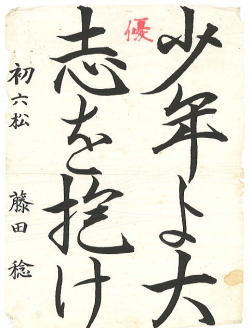 少年よ大
志を抱け
優
初六松 藤田稔